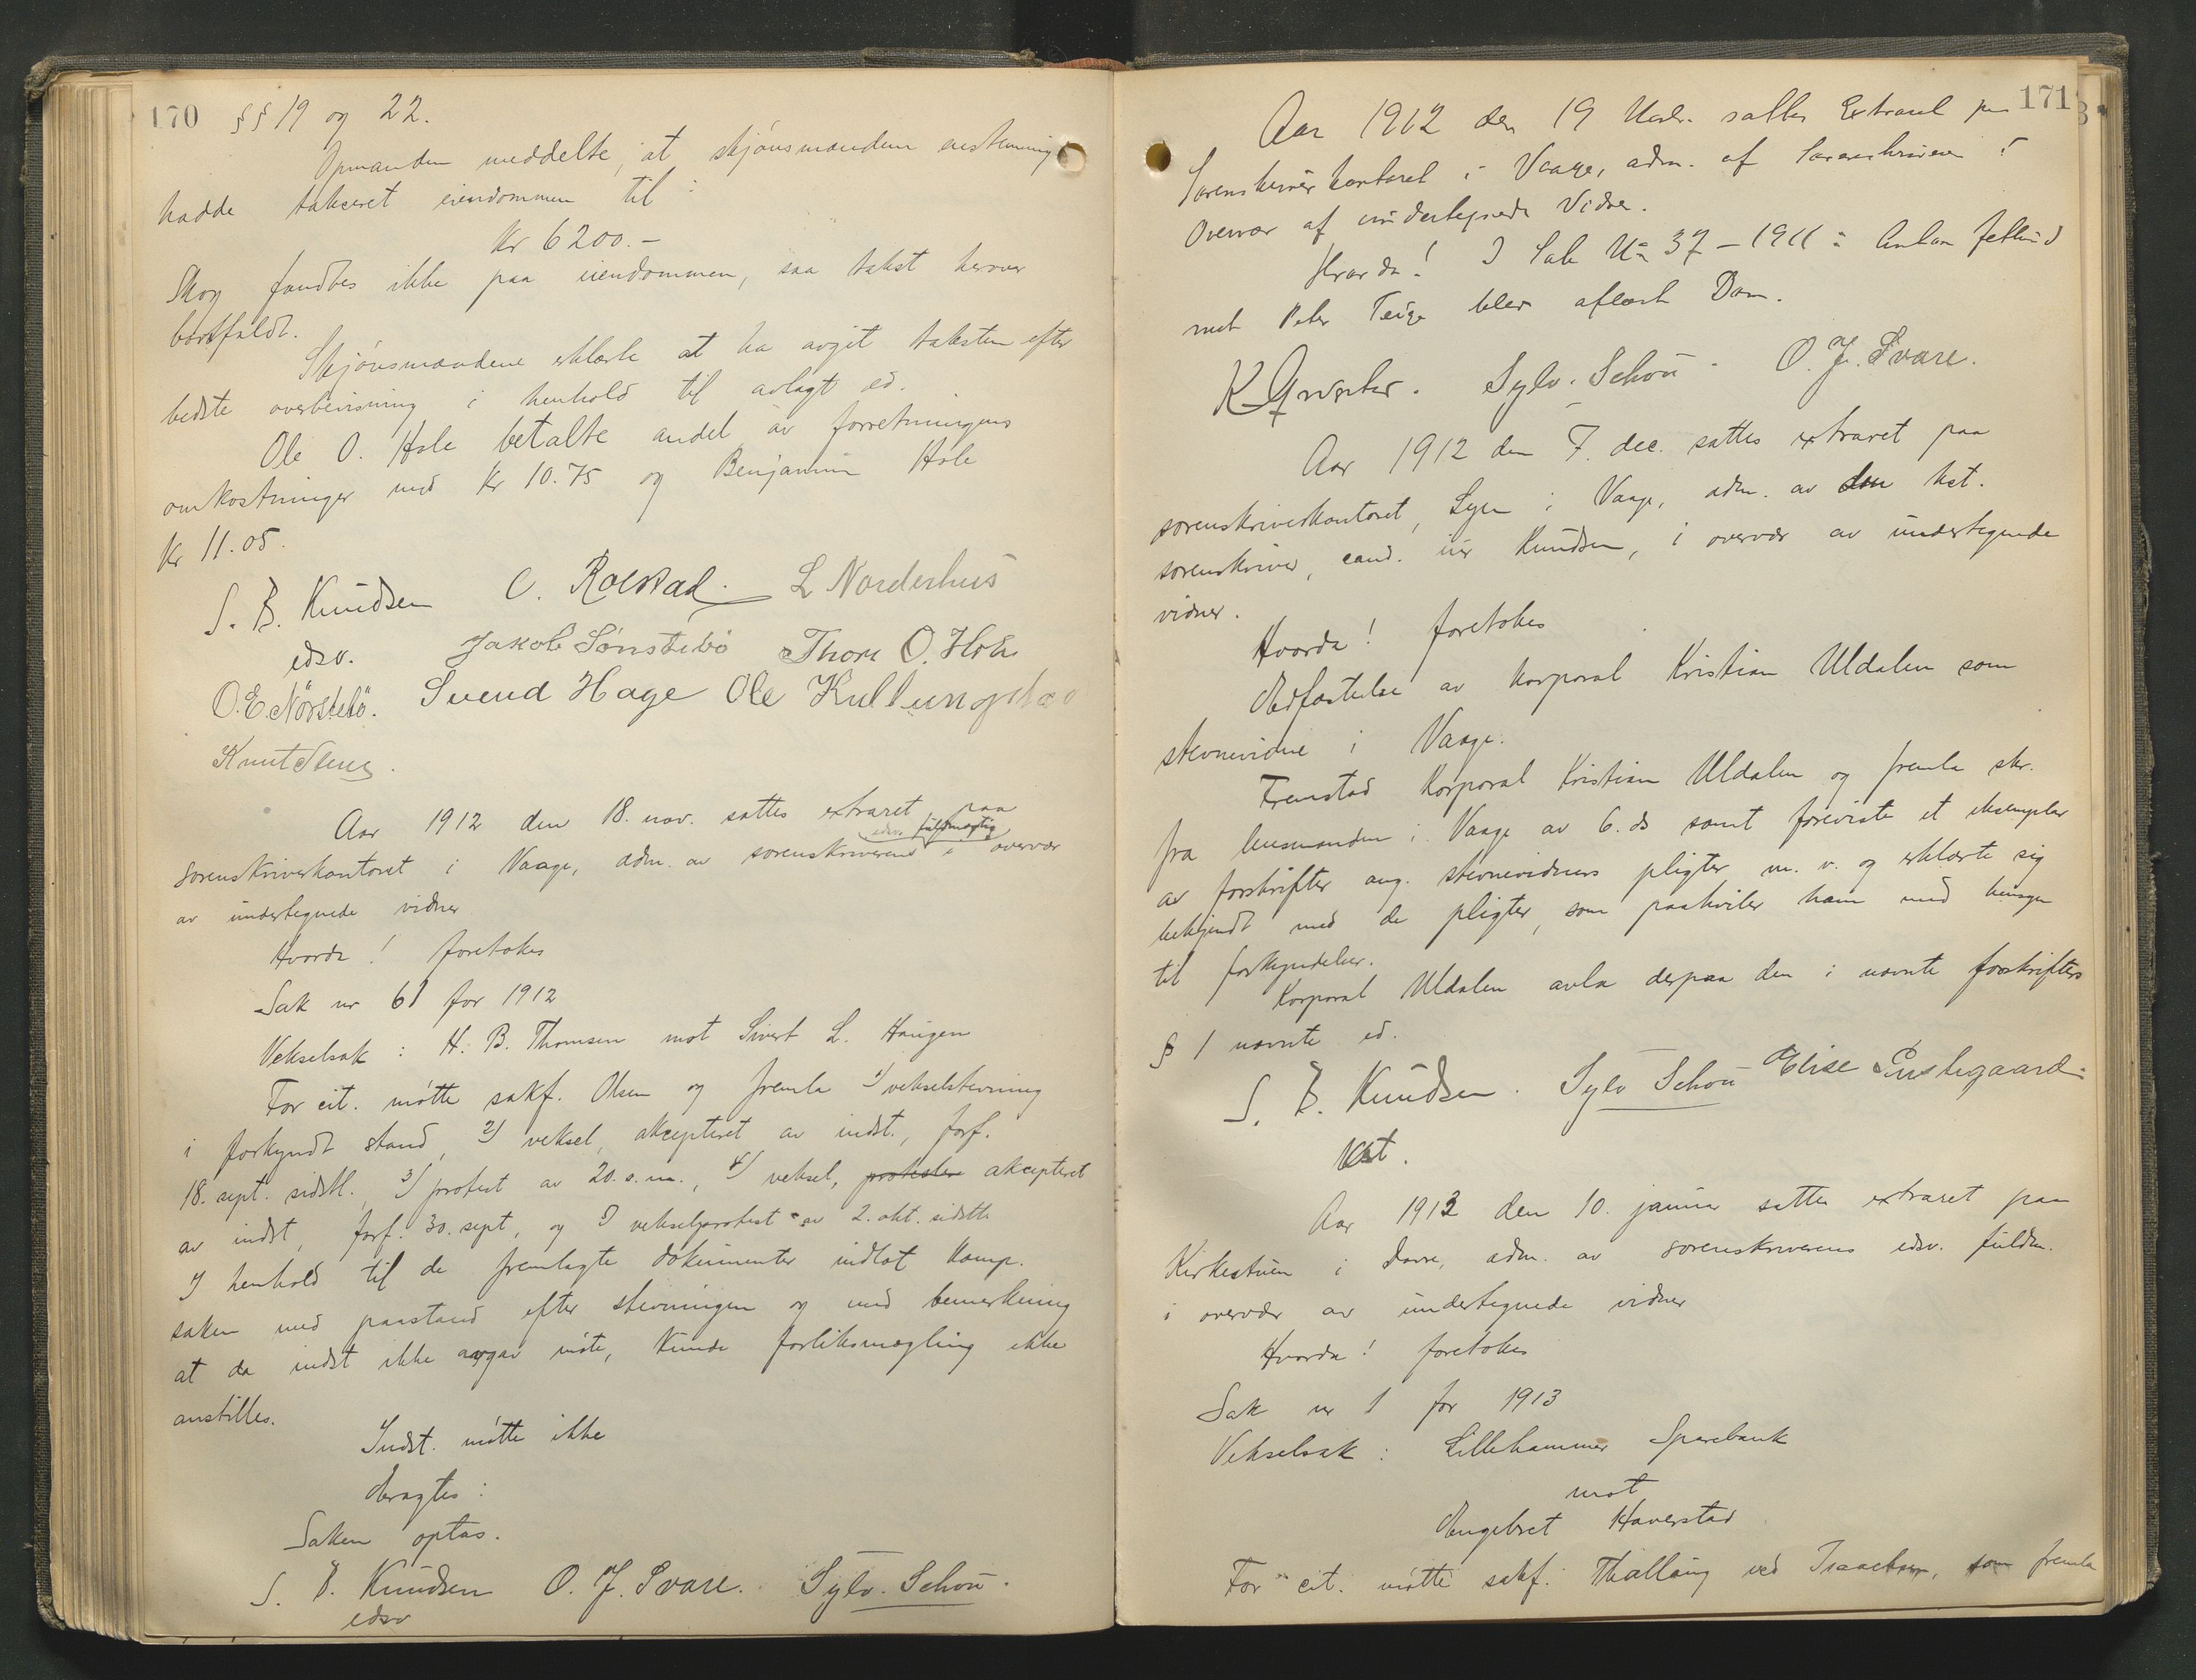 170 §§ 19 og 22.
Opmanden meddelte, at skjønsmændene enstemmig
hadde takseret eiendommen til :
Kr 6200.-
Skog fandtes ikke paa eiendommen, saa takst herover
bortfaldt.
Skjønsmændene erklærte at ha avgit taksten efter
bedste overbevisning i henhold til avlagt ed.
Ole O. Hole betalte andel av forretningens
omkostninger med kr 10.75 og Benjamin Hole
kr 11.05.
S. B. Knudsen O. Rolstad. L Norderhus
edsv. Jakob Sønstebø Thore O. Hole
O.E. Nørstebø. Svend Hage Ole Kullungstad
Knut
Aar 1912 den 18. nov. sattes extraret paa
edsv. fuldmægtig
sorenskriverkontoret i Vaage, adm. av sorenskriverens i overvær
av undertegnede vidner
Hvorda! foretokes
Sak nr 61 for 1912
Vekselsak : H. B. Thomsen mot Sivert L. Haugen
For cit. møtte sakf. Olsen og fremla 1) vekselstevning
i forkyndt stand, 2) veksel, akcepteret av indst., forf.
18. sept. sidstl., 3) protest av 20. s. m., 4) veksel, protester akcepteret
av indst, forf. 30. sept, og 5) vekselprotest av 2. okt. sidstl.
I henhold til de fremlagte dokumenter indlot komp.
saken med paastand efter stevningen og med bemerkning
at da indst ikke avgav møte, kunde forliksmegling ikke
anstilles.
Indst. møtte ikke
Eragtes :
Saken optas.
S. B. Knudsen O. J. Svare. Sylv. Schou.
edsv
171
Aar 1912 den 19 Novbr. sattes Extraret paa
Sorenskriverkontoret i Vaage, adm. af Sorenskriveren i
Overvær af undertegnede Vidner.
Hvorda! I Sak No 37 - 1911 : Anton Jetlund
mot Peter Teige blev aflæst Dom.
K. Sylv. Schou. O. J. Svare.
Aar 1912 den 7. dec. sattes extraret paa
sorenskriverkontoret, Syse i Vaage, adm. av den kst.
sorenskriver, cand. jur Knudsen, i overvær av undertegnede
vidner.
Hvorda! foretokes
Edfæstelse av korporal Kristian Uldalen som
stevnevidne i Vaage.
Fremstod Korporal Kristian Uldalen og fremla skr.
fra lensmanden i Vaage av 6. ds samt foreviste et eksemplar
av forskrifter ang. stevnevidners pligter m. v. og erklærte sig
bekjendt med de pligter, som paahviler ham med hensyn
til forkyndelser.
Korporal Uldalen avla derpaa den i nævnte forskrifters
§ 1 nævnte ed.
S. B. Knudsen. Sylv Schou Elise Sustegaard.
Kst.
Aar 1913 den 10. januar sattes extraret paa
Kirkestuen i Dovre, adm. av sorenskriverens edsv. fuldm.
i overvær av undertegnede vidner
Hvorda! foretokes
Sak nr 1 for 1913
Vekselsak : Lillehammer Sparebank
mot
Engebret Haverstad
For cit. møtte sakf. Thallaug ved Isaachsen, som fremla